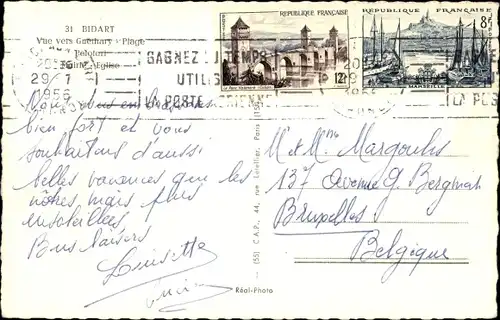 31 BIDART
Vue vers Guéthary - Plage
Pelotari
Eglise
20
29 - 7
1956
GAGNEZ DU TEMPS
UTILIS
LA POSTE AERIENNE
REPUBLIQUE FRANÇAISE
12F
Le Pont Valentré - Cahors
REPUBLIQUE FRANÇAISE
8F
MARSEILLE
LA POS
Nous vous embrassons
bien fort et vous
souhaitons d'aussi
belles vacances que les
nôtres, mais plus
ensoleillées.
Bons baisers
Louisette
M. et Mme Margoulis
137 Avenue G. Bergmann
Bruxelles
Belgique
(55) C.A.P., 44, rue Letellier, Paris (15e)
Réal-Photo